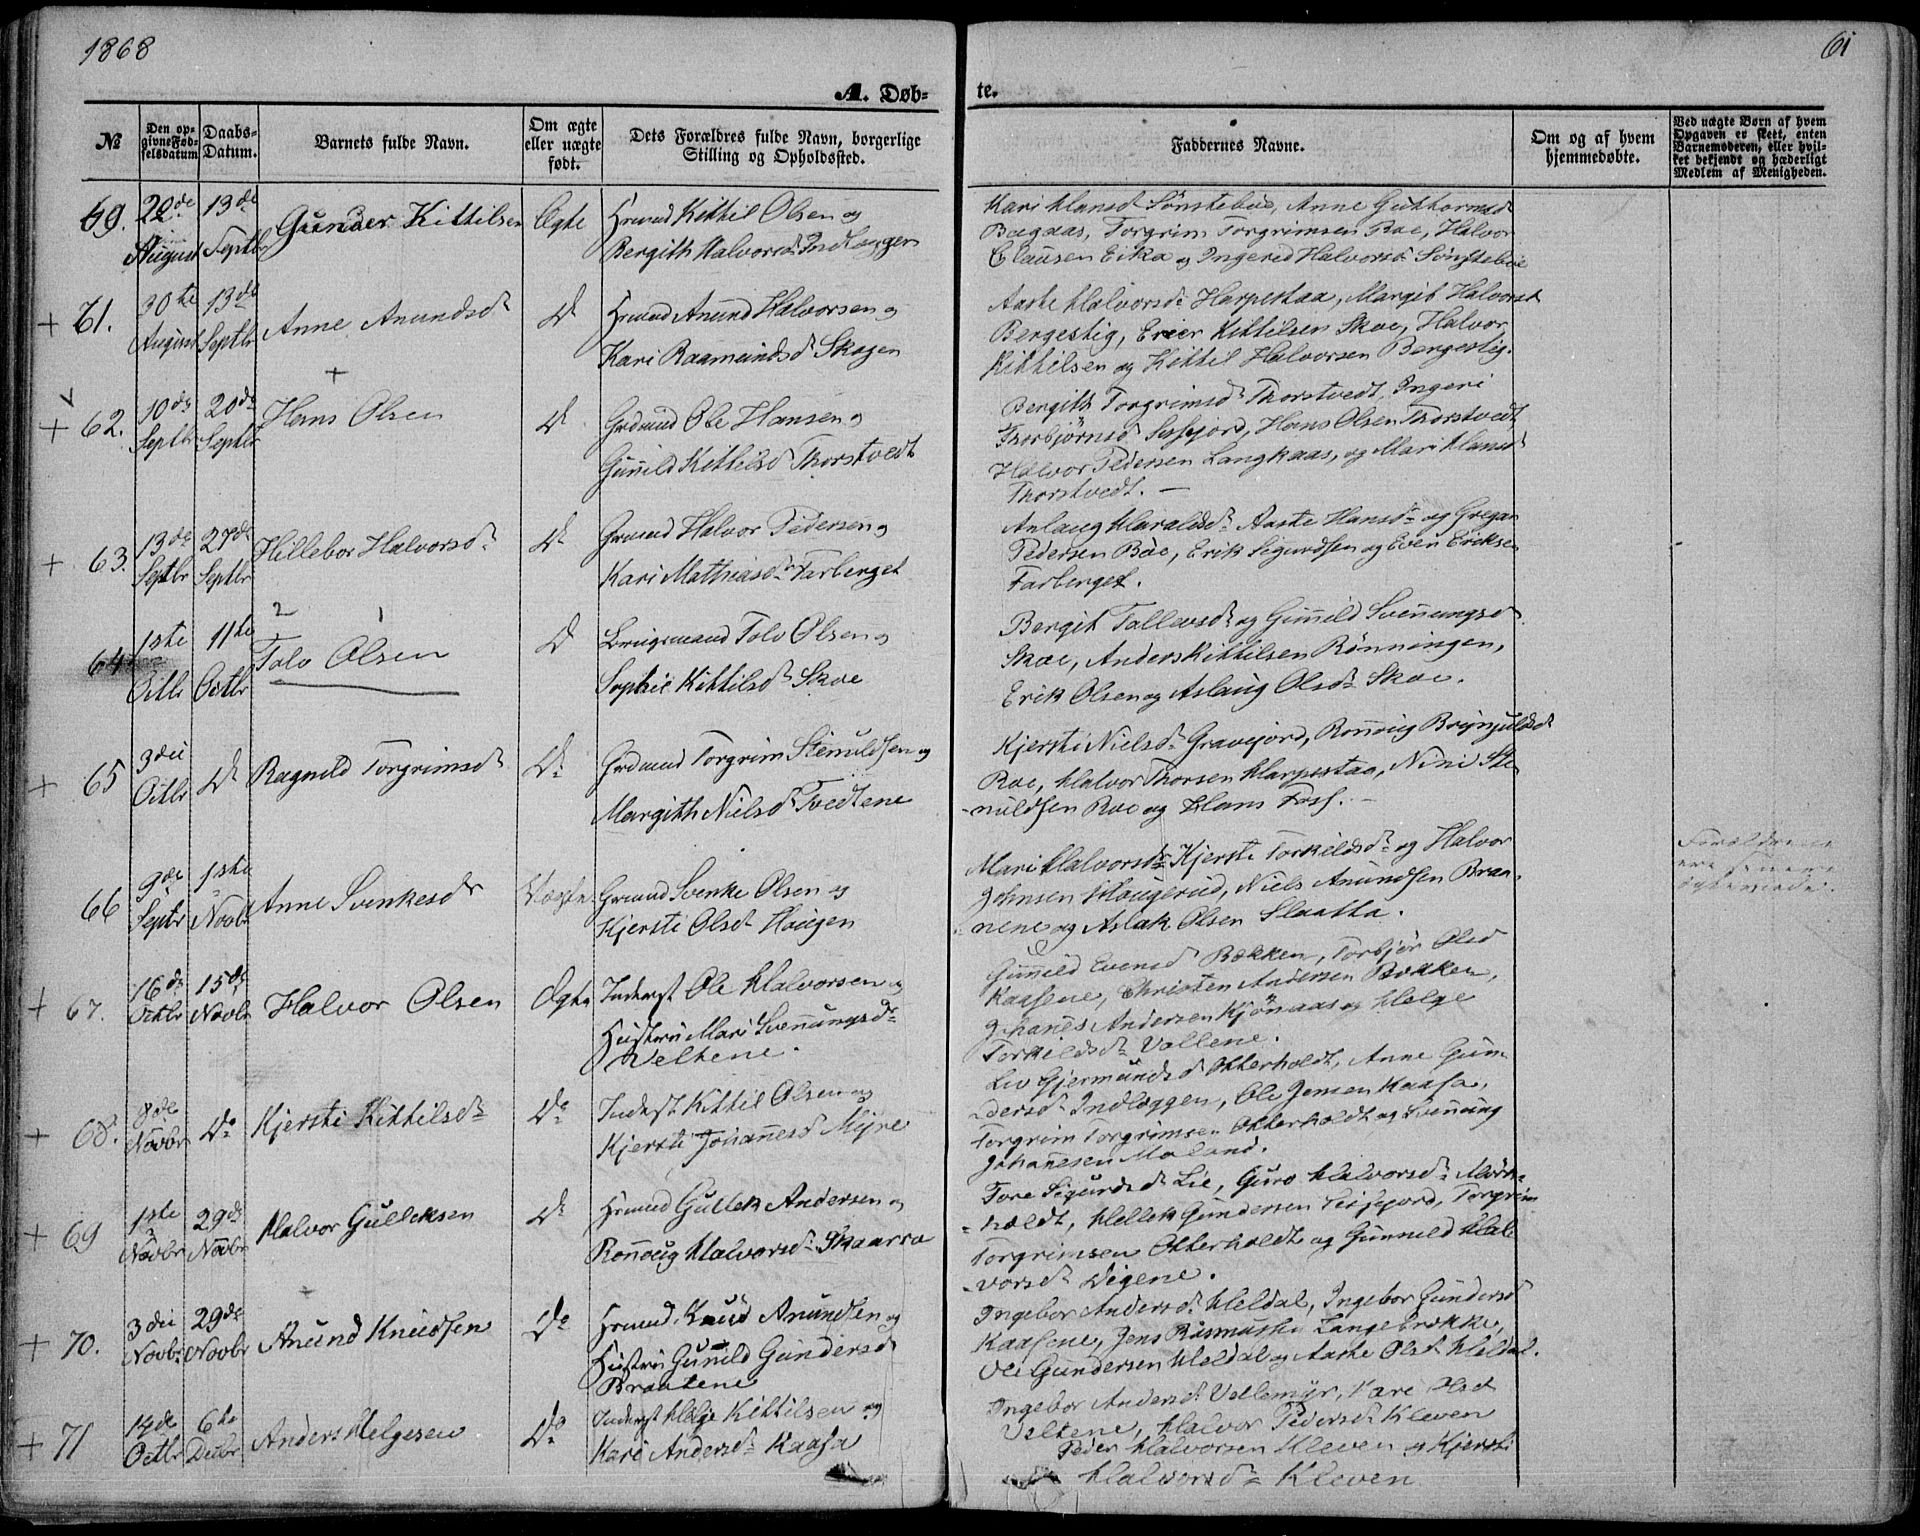 1868
61
A. Døb-
te.
№
Den op-
givne Fød-
selsdatum
Daabs-
Datum.
Barnets fulde Navn.
Om ægte
eller uægte
født.
Dets Forældres fulde Navn, borgerlige
Stilling og Opholdssted.
Faddernes Navne.
Om og af hvem
hjemmedøbte.
Ved uægte Børn af hvem
Opgaven er skeet, enten
Barnemoderen, eller hvil-
ket bekjendt og hæderligt
Medlem af Menigheden.
60. 22de August 13de Septbr Gunder Kittilsen Ægte Hrmd Kittil Olsen og
Bergith Halvorsd. Indlaggen
Kari Hansd Sønstebøe, Anne Guthormsd
Bagaas, Torgrim Torgrimsen Roe, Halvor
Clausen Eika og Ingered Halvorsd Sønstebøe
+ 61. 30te August 13de Septbr Anne Anundsd Do Hrmd Anund Halvorsen og
Kari Raamundsd Skogen
Aaste Halvorsd Harpestaa, Margit Halvorsd
Bergestig, Erier Kittilsen Skoe, Halvor
Kittilsen og Kittil Halvorsen Bergestig.
+ 62. 10de Septbr 20de Septbr Hans Olsen Do Grdmd Ole Hansen og
Gunild Kittilsd Thorstvedt
Bergith Torgrimsd Thorstvedt, Ingeri
Thorbjørnsd, Hans Olsen Thorstvedt
Halvor Pedersen Langkaas, og Mari Hansd
Thorstvedt. —
+ 63. 13de Septbr 27de Septbr Hillebor Halvorsd Do Grmd Halvor Pedersen og
Kari Mathiasd Farberget
Aslaug Haraldsd Aaste Hansd og Gregar
Pedersen Bøe, Erik Sigurdsen og Even Eriksen
Farberget.
2 1
64 1ste Octbr 11te Octbr Tolv Olsen Do Brugsmand Tolv Olsen og
Sophie Kittilsd Skoe
Bergit Tallevsd og Gunild Svenungsd
Skoe, Anders Kittilsen Rønningen,
Erik Olsen og Aslaug Olsd Skoe.
+ 65 3die Octbr Do Ragnild Torgrimsd Do Grdmd Torgrim Stenuldsen og
Margith Nielsd Tvedtene
Kjersti Nielsd Gravejord, Rønnoug Brynjulvsd
Roe, Halvor Thorsen Harpestaa, Nini Ste
nuldsen Roe og Hans Foss. —
66 9de Septbr 1ste Novbr Anne Svenkesd Uægte Grmd Svenke Olsen og
Kjersti Olsd Haugen
Mari Halvorsd Kjersti Torkildsd og Halvor
Johnsen Haugerud, Niels Anundsen Braa-
nene og Aslak Olsen Slaatta.
Forældrene
ere senere
+ 67. 16de Octbr 15de Novbr Halvor Olsen Ægte Inderst Ole Halvorsen og
Hustru Mari Svenungsd
Veltene.
Gunild Evensd Bækken, Torbjør Olsd
Kaasene, Christen Andersen Bækken,
Johanes Andersen Kjønaas og Helge
Torkildsd Vallene.
+ 68. 8de Novbr Do Kjersti Kittilsd Do Inderst Kittil Olsen og
Kjersti Johanesd Myre
Liv Gjermundsd Otterholdt, Anne Gun-
dersd Indlaggen, Ole Jensen Kaasa,
Torgrim Torgrimsen Otterholdt og Svenung
Johanesen Moland.
+ 69 1ste Novbr 29de Novbr Halvor Gulleksen Do Hrmd Gullek Andersen og
Ronnoug Halvorsd Skaarra
Tore Sigurdsd Lie, Guro Halvorsd Mørk-
holdt, Hellek Gundersen, Torgrim
Torgrimsen Otterholdt og Gunnild Hal
vorsd Digene.
+ 70. 3die Novbr 29de Novbr Anund Knudsen Do Hrmd Knud Anundsen og
Hustru Gunild Gundersd
Braatene
Ingebor Andersd Heldal, Ingebor Gundersd
Kaasene, Jens Rasmussen Langebrække,
Ole Gundersen Heldal og Aaste Olsd Heldal.
+ 71 14de Octbr 6te Decbr Anders Helgesen Do Inderst Helje Kittilsen og
Kari Andersd Kaasa
Ingebor Andersd Vellemyr, Kare Olsd
Veltene, Halvor Pedersd Kleven
Peder Halvorsen Kleven og Kjersti
Halvorsd Kleven